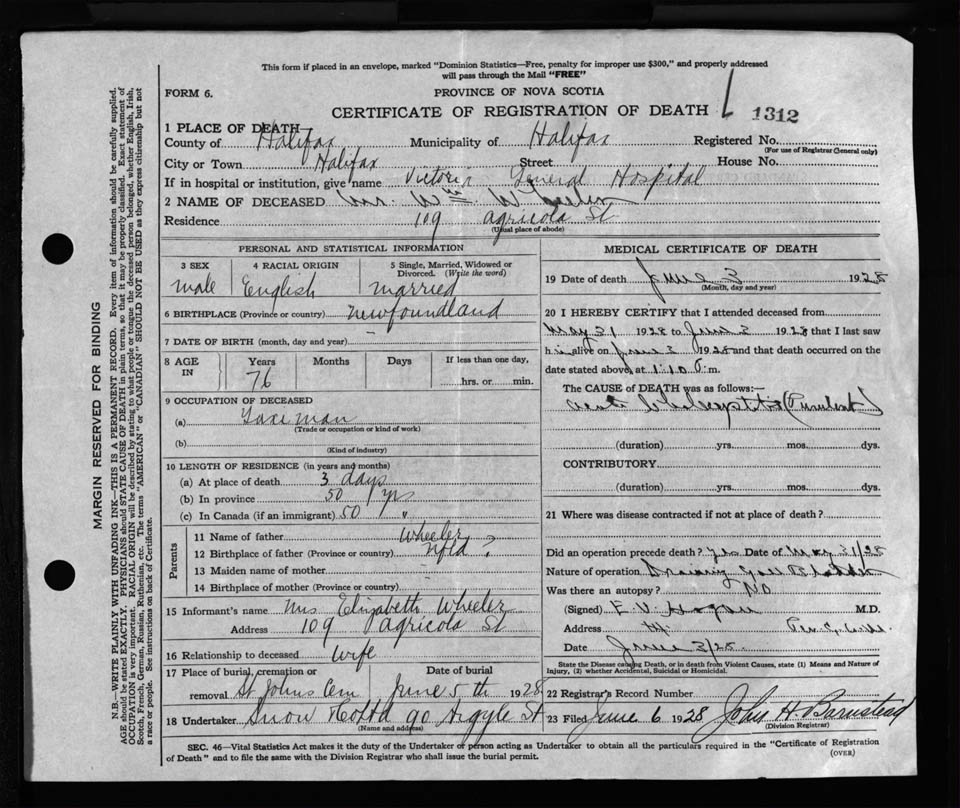 This form if placed in an envelope, marked "Dominion Statistics—Free, penalty for improper use $300," and properly addressed
will pass through the Mail "FREE"
FORM 6.
PROVINCE OF NOVA SCOTIA
CERTIFICATE OF REGISTRATION OF DEATH
1312
1 PLACE OF DEATH
County of Halifax Municipality of Halifax Registered No.
(For use of Registrar General only)
City or Town Halifax Street House No.
If in hospital or institution, give name Victoria General Hospital
2 NAME OF DECEASED Wm Wheeler
Residence 109 Agricola St
(Usual place of abode)
PERSONAL AND STATISTICAL INFORMATION
3 SEX
male
4 RACIAL ORIGIN
English
5 Single, Married, Widowed or
Divorced. (Write the word)
married
6 BIRTHPLACE (Province or country) Newfoundland
7 DATE OF BIRTH (month, day and year) –
8 AGE
IN
Years
76
Months
Days
If less than one day,
hrs. or min.
9 OCCUPATION OF DECEASED
(a)
(Trade or occupation or kind of work)
(b)
(Kind of industry)
10 LENGTH OF RESIDENCE (in years and months)
(a) At place of death 3 days
(b) In province 50 yrs
(c) In Canada (if an immigrant) 50 "
Parents
11 Name of father Wheeler
12 Birthplace of father (Province or country) Nfld ?
13 Maiden name of mother –
14 Birthplace of mother (Province or country)
15 Informant's name Mrs Elizabeth Wheeler
Address 109 Agricola St
16 Relationship to deceased wife
17 Place of burial, cremation or
removal St Johns Cem
Date of burial
June 5th 1928
18 Undertaker Snow Co Ltd 90 Argyle St
(Name and address)
MEDICAL CERTIFICATE OF DEATH
19 Date of death June 3 1928
(Month, day and year)
20 I HEREBY CERTIFY that I attended deceased from
May 31 1928 to June 3 1928 that I last saw
him alive on June 3 1928 and that death occurred on the
date stated above, at 1:10 P.m.
The CAUSE of DEATH was as follows:—
(Purulent)
(duration) yrs. mos. dys.
CONTRIBUTORY
(duration) yrs. mos. dys.
21 Where was disease contracted if not at place of death?
Did an operation precede death? Yes Date of May 31/28
Nature of operation Draining Gall Bladder
Was there an autopsy? No
(Signed) E V Hogan M.D.
Address
Date June 3/28.
State the Disease causing Death, or in death from Violent Causes, state (1) Means and Nature of
Injury, (2) whether Accidental, Suicidal or Homicidal.
22 Registrar's Record Number
23 Filed June 6 1928 John H Barnstead
(Division Registrar)
SEC. 46—Vital Statistics Act makes it the duty of the Undertaker or person acting as Undertaker to obtain all the particulars required in the "Certificate of Registration
of Death" and to file the same with the Division Registrar who shall issue the burial permit.
(OVER)
MARGIN RESERVED FOR BINDING
N.B.—WRITE PLAINLY WITH UNFADING INK—THIS IS A PERMANENT RECORD. Every item of information should be carefully supplied.
AGE should be stated EXACTLY. PHYSICIANS should STATE CAUSE OF DEATH in plain terms, so that it may be properly classified. Exact statement of
OCCUPATION is very important. RACIAL ORIGIN will be described by stating to what people or tongue the deceased person belonged, whether English, Irish,
Scotch, French, German, Russian, Ruthenian, etc. The terms "AMERICAN" or "CANADIAN" SHOULD NOT BE USED as they express citizenship but not
a race or people. See instructions on back of Certificate.